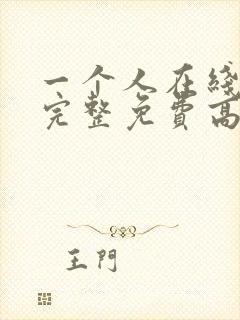 一个人在线
完整免费高
王門